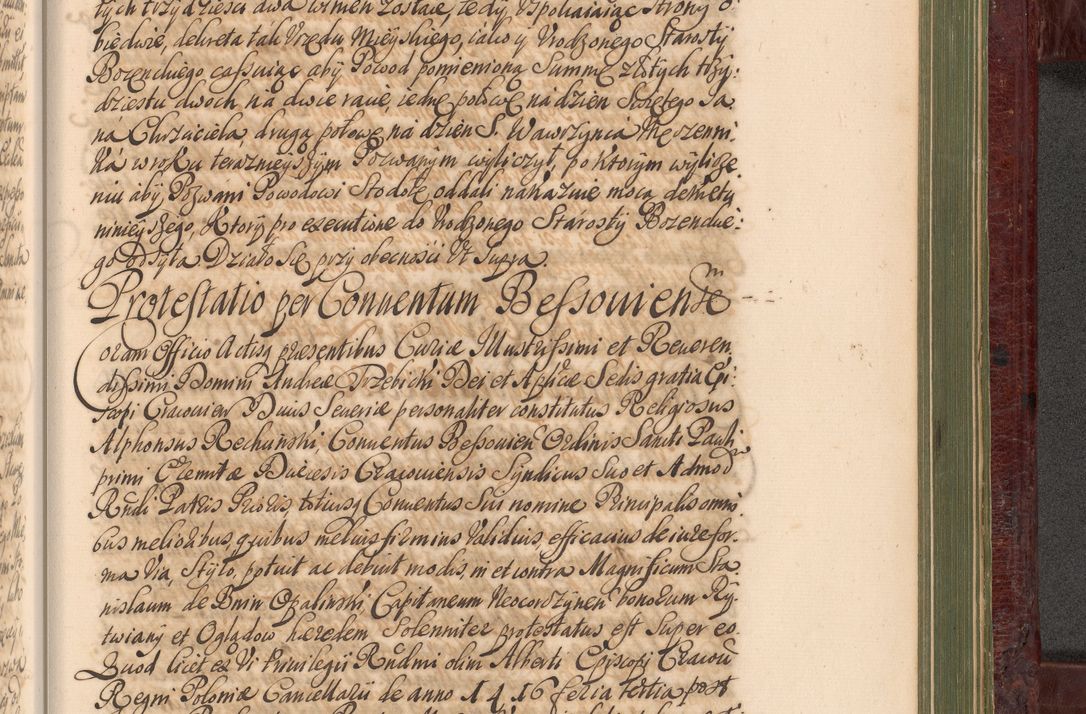 tych trzydziesci dwa winien zostaie, tedy Uspokaiaiąc Strony o
biedwie, dekreta tak Urzędu Mieyskiego, iako y Urodzonego Starosty
Bozenckiego cassuiąc aby Powod pomienioną Summę złotych trzy:
dziestu dwoch, na dwie racie, iednę połowę na dzien Swiętego Ja
na Chrzciciela, drugą połowę na dzien S. Wawrzynca Męczenni
ka w roku teraznieyszym Pozwanym wyliczył, po ktorym wylicze
niu aby Pozwani Powodowi Stodołę oddali nakazuie mocą dekretu
ninieyszego, Ktory pro executione do Urodzonego Starosty Bozenckie:
go odsyła Działo się przy obecnosci Ut Supra.
Protestatio per Conuentum Bessouiensem
Coram Officio Actisq praesentibus Curiae Illustrissimi et Reueren
dissimi Domini Andreae Trzebicki Dei et Aplicae Sedis gratia Epi:
scopi Cracouien Ducis Seueriae personaliter constitutus Religiosus
Alphonsus Rechunski, Conuentus Bessouien Ordinis Sancti Pauli
primi Eremitae Duecesis Cracouiensis Syndicus Suo et Admod
Rndi Patris Prioris, totiusq Conuentus Sui nomine Principalis omni
bus melioribus, quibus melius firmius Validius, efficacius de iure for:
ma Via, Stylo, potuit ac debuit modis, in et contra Magnificum Sta
nislaum de Bnin Opalinski Capitaneum Neocorczynen bonorum Ry:
twiany et Oglądow haeredem Solenniter protestatus est Super eo.
Quod licet ex Vi Priuilegij Rndmi olim Alberti Episcopi Cracou
Regni Poloniae Cancellarij de anno 1416 feria tertia post